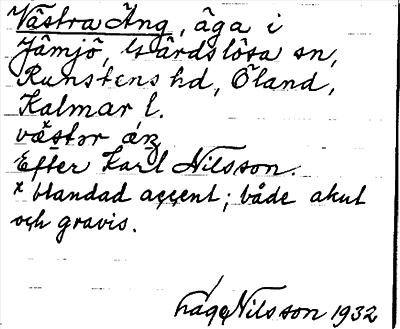 Västra Äng, äga i
Jämjö, Gärdslösa sn,
Runstens hd, Öland,
Kalmar l.
Efter Karl Nilsson.
x blandad accent; både akut
och gravis.
Nilsson 1932